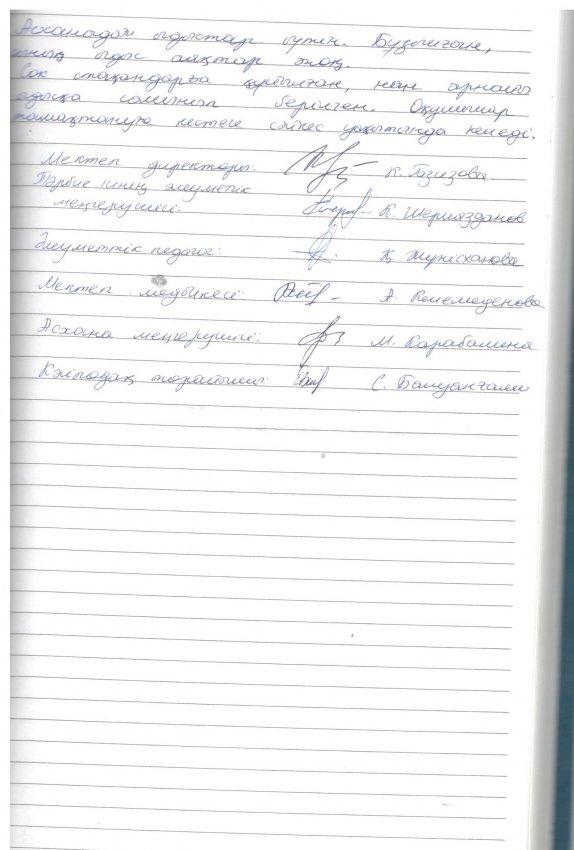 Асханадағы ыдыстар бүтін. Бұзылған,
сынық ыдыс аяқтар жоқ.
Сок стақандарға құйылған, нан арнайы
ыдысқа салынып берілген. Оқушылар
тамақтануға кестеге сәйкес уақытында келеді.
Мектеп директоры: К. Газизова.
Тәрбие ісінің әлеуметік
меңгерушісі: К. Шериязданов
Әлуметтік педагог: Қ Жүнісханова
Мектеп медбикесі: А. Келемеденова
Асхана меңгерушісі: М. Карабалина
Кәсіподақ төрайымы: С. Бауанғали